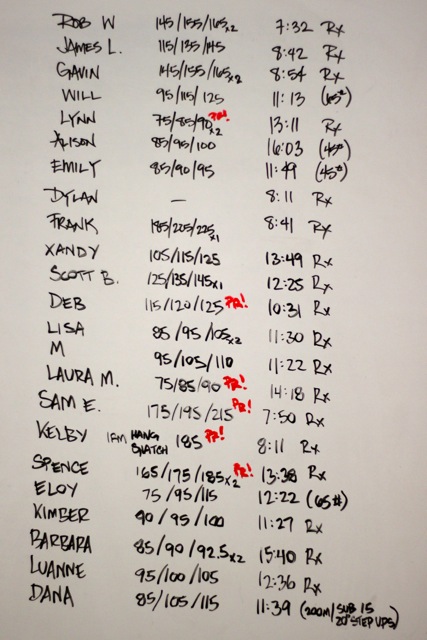 ROB W 145/155/165x2 7:32 Rx
JAMES L. 115/135/145 8:42 Rx
GAVIN 145/155/165x2 8:54 Rx
WILL 95/115/125 11:13 (65#)
LYNN 75/85/90x2 PR! 13:11 Rx
ALISON 85/95/100 16:03 (45#)
EMILY 85/90/95 11:49 (45#)
DYLAN — 8:11 Rx
FRANK 185/205/225x1 8:41 Rx
XANDY 105/115/125 13:49 Rx
SCOTT B. 125/135/145x1 12:25 Rx
DEB 115/120/125 PR! 10:31 Rx
LISA 85/95/105x2 11:30 Rx
M 95/105/110 11:22 Rx
LAURA M. 75/85/90 PR! 14:18 Rx
SAM E. 175/195/215 PR! 7:50 Rx
KELBY 1RM HANG SNATCH 185 PR! 8:11 Rx
SPENCE 165/175/185x2 PR! 13:38 Rx
ELOY 75/95/115 12:22 (65#)
KIMBER 90/95/100 11:27 Rx
BARBARA 85/90/92.5x2 15:40 Rx
LUANNE 95/100/105 12:36 Rx
DANA 85/105/115 11:39 (200M/SUB 15 20" STEP UPS)